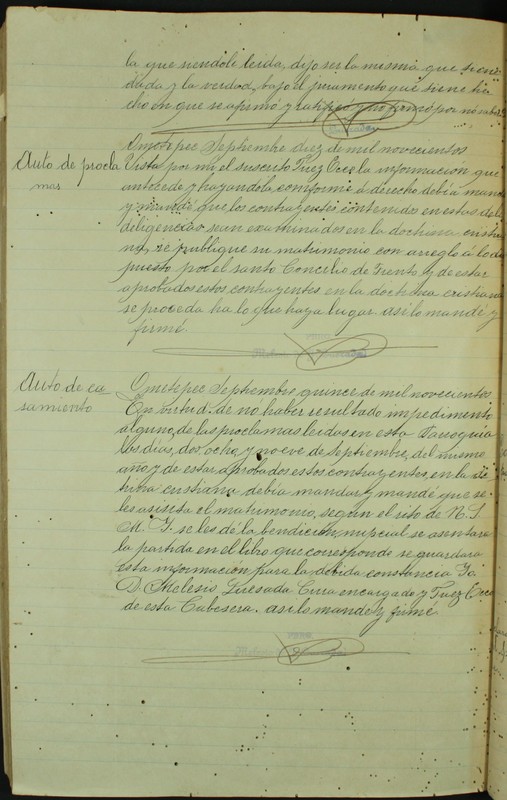 la que siendole leida, dijo ser la misma que tiene
dada y la verdad, bajo el juramento que tiene he
cho en que se afirmó y ratificó y no firmó por no saber
Auto de procla
mas
Ometepec Septiembre diez de mil novecientos
Vista por mi el suscrito Juez Ecco la información que
antecede y hayandola conforme á derecho debia mandar
y mandé que los contrayentes contenidos en estas
diligencias sean examinados en la doctrina cristia
na, se publique su matrimonio con arreglo á lo dis
puesto por el santo Concilio de Trento y de estar
aprobados estos contrayentes en la doctrina cristiana
se proceda ha lo que haya lugar. asi lo mandé y
firmé.
Auto de ca
samiento
Ometepec Septiembre quince de mil novecientos
En virtud de no haber resultado impedimento
alguno, de las proclamas leidas en esta Parroquia
los dias, dos, ocho, y nueve de Septiembre, del mismo
año y de estar aprobados estos contrayentes, en la doc
trina cristiana debia mandar y mandé que se
les asista el matrimonio, segun el rito de N. S.
M. Y. se les de la bendicion nupcial se asentara
la partida en el libro que corresponde se guardara
esta información para la debida constancia Yo
D. Melesio Quesada Cura encargado y Juez Ecco
de esta Cabesera. asi lo mandé y firmé